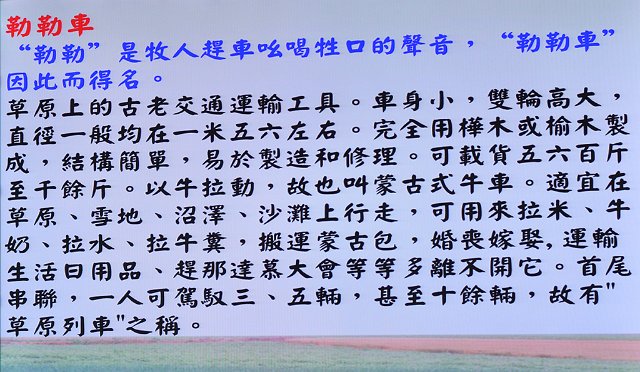 勒勒車
“勒勒”是牧人趕車吆喝牲口的聲音，“勒勒車”
因此而得名。
草原上的古老交通運輸工具。車身小，雙輪高大，
直徑一般均在一米五六左右。完全用樺木或榆木製
成，結構簡單，易於製造和修理。可載貨五六百斤
至千餘斤。以牛拉動，故也叫蒙古式牛車。適宜在
草原、雪地、沼澤、沙灘上行走，可用來拉米、牛
奶、拉水、拉牛糞，搬運蒙古包，婚喪嫁娶,運輸
生活日用品、趕那達慕大會等等多離不開它。首尾
串聯，一人可駕馭三、五輛，甚至十餘輛，故有"
草原列車"之稱。